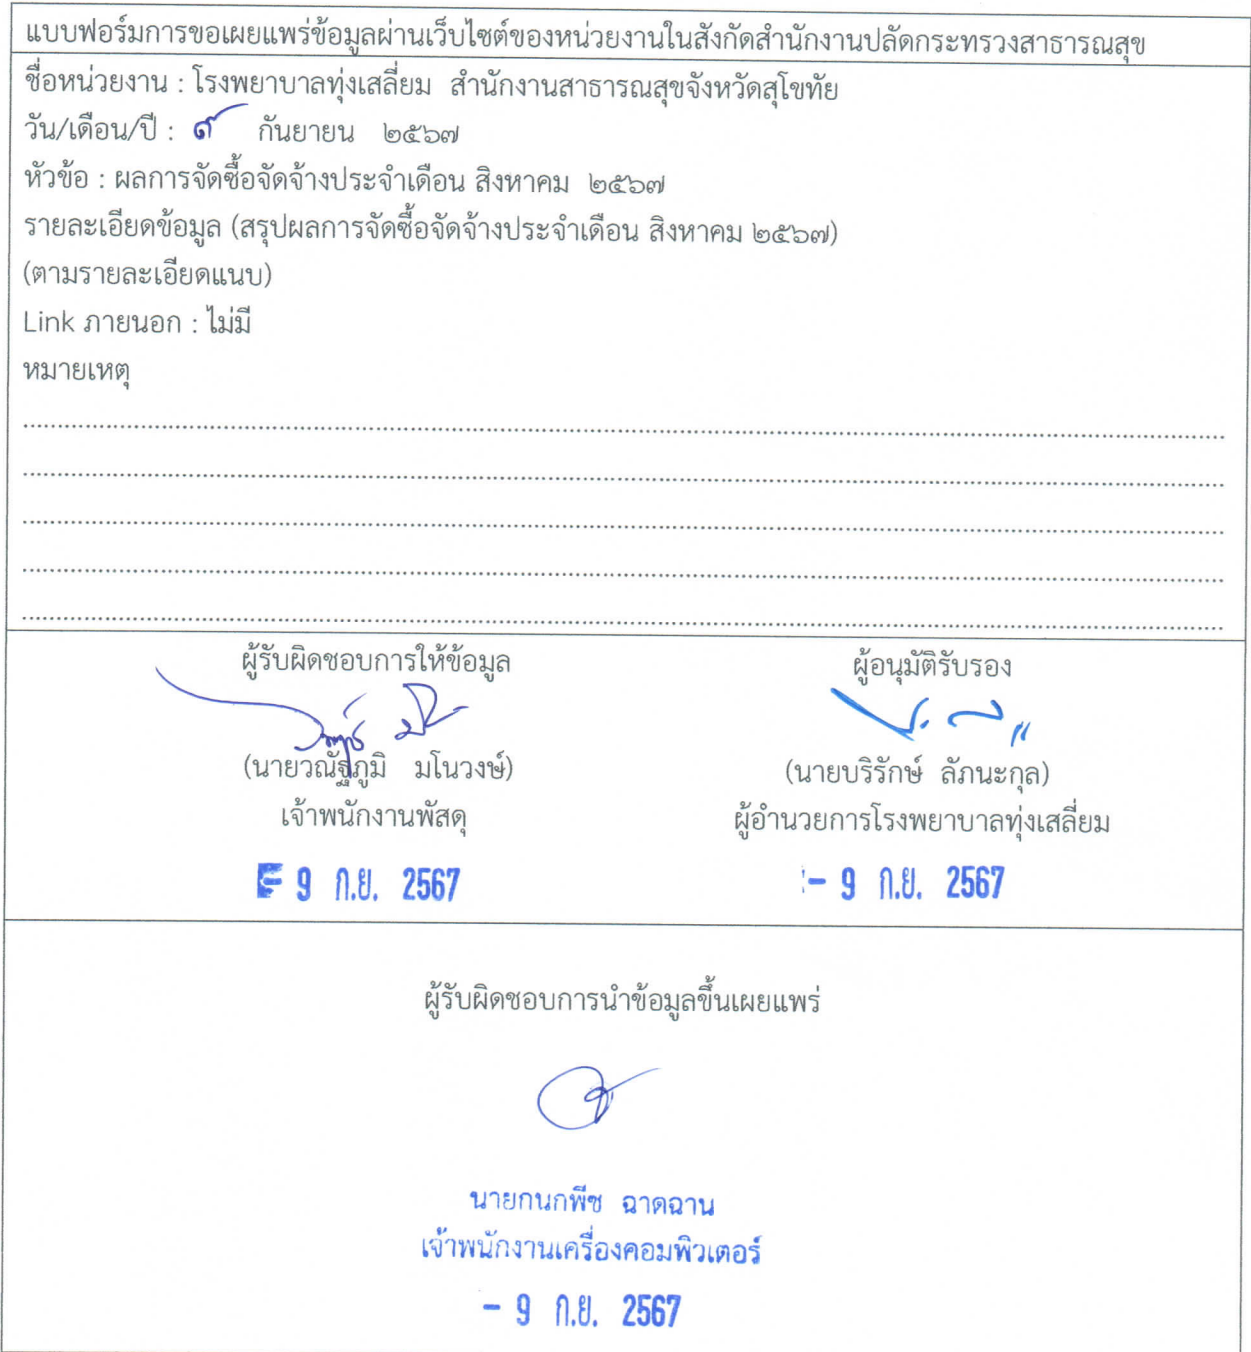 แบบฟอร์มการขอเผยแพร่ข้อมูลผ่านเว็บไซต์ของหน่วยงานในสังกัดสำนักงานปลัดกระทรวงสาธารณสุข
ชื่อหน่วยงาน : โรงพยาบาลทุ่งเสลี่ยม สำนักงานสาธารณสุขจังหวัดสุโขทัย
วัน/เดือน/ปี : ๙ กันยายน ๒๕๖๗
หัวข้อ : ผลการจัดซื้อจัดจ้างประจำเดือน สิงหาคม ๒๕๖๗
รายละเอียดข้อมูล (สรุปผลการจัดซื้อจัดจ้างประจำเดือน สิงหาคม ๒๕๖๗)
(ตามรายละเอียดแนบ)
Link ภายนอก : ไม่มี
หมายเหตุ
ผู้รับผิดชอบการให้ข้อมูล
(นายวณัฐภูมิ มโนวงษ์)
เจ้าพนักงานพัสดุ
- 9 ก.ย. 2567
ผู้อนุมัติรับรอง
(นายบริรักษ์ ลัภนะกุล)
ผู้อำนวยการโรงพยาบาลทุ่งเสลี่ยม
- 9 ก.ย. 2567
ผู้รับผิดชอบการนำข้อมูลขึ้นเผยแพร่
นายกนกพีช ฉาดฉาน
เจ้าพนักงานเครื่องคอมพิวเตอร์
- 9 ก.ย. 2567